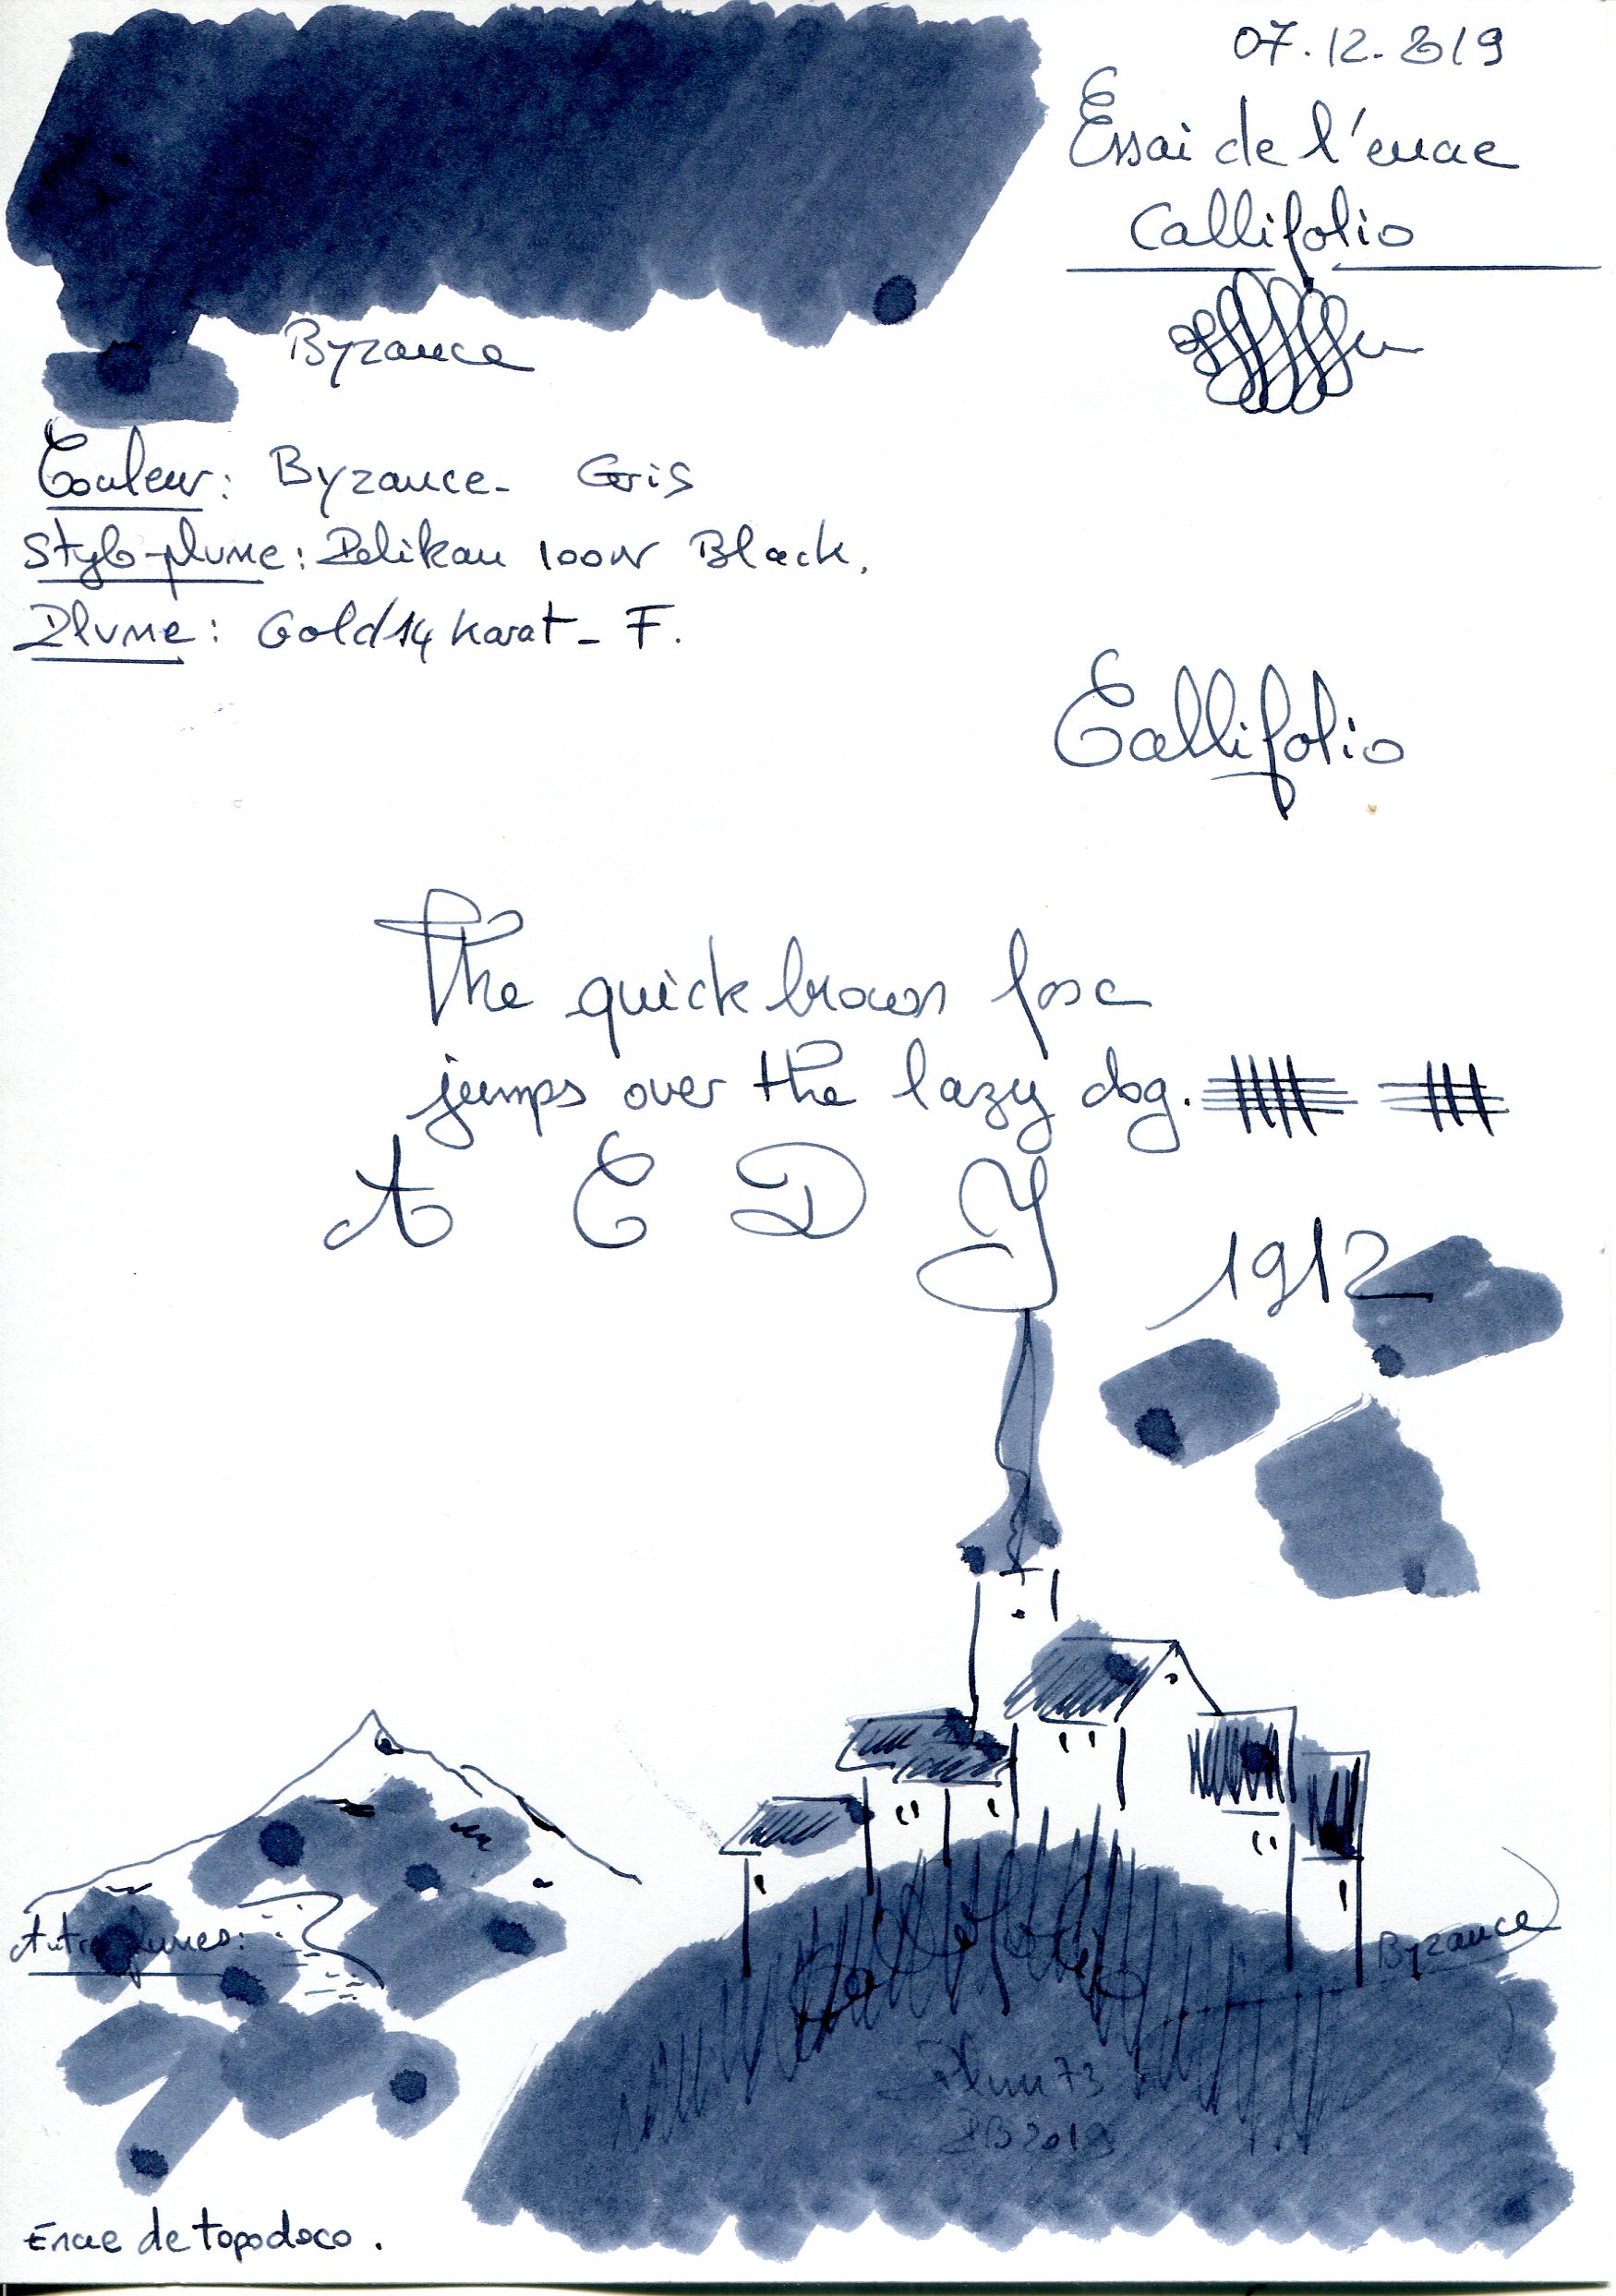 07.12.2019
Essai de l'encre
Callifolio
Byzance
Couleur: Byzance- Gris
Stylo-plume: Pelikan 100N Black.
Plume: Gold 14 Karat- F.
Callifolio
The quick brown fox
jumps over the lazy dog.
A C D Y
1912
Autres plumes:
Byzance
Plum 73
2019
Encre de topodoco.